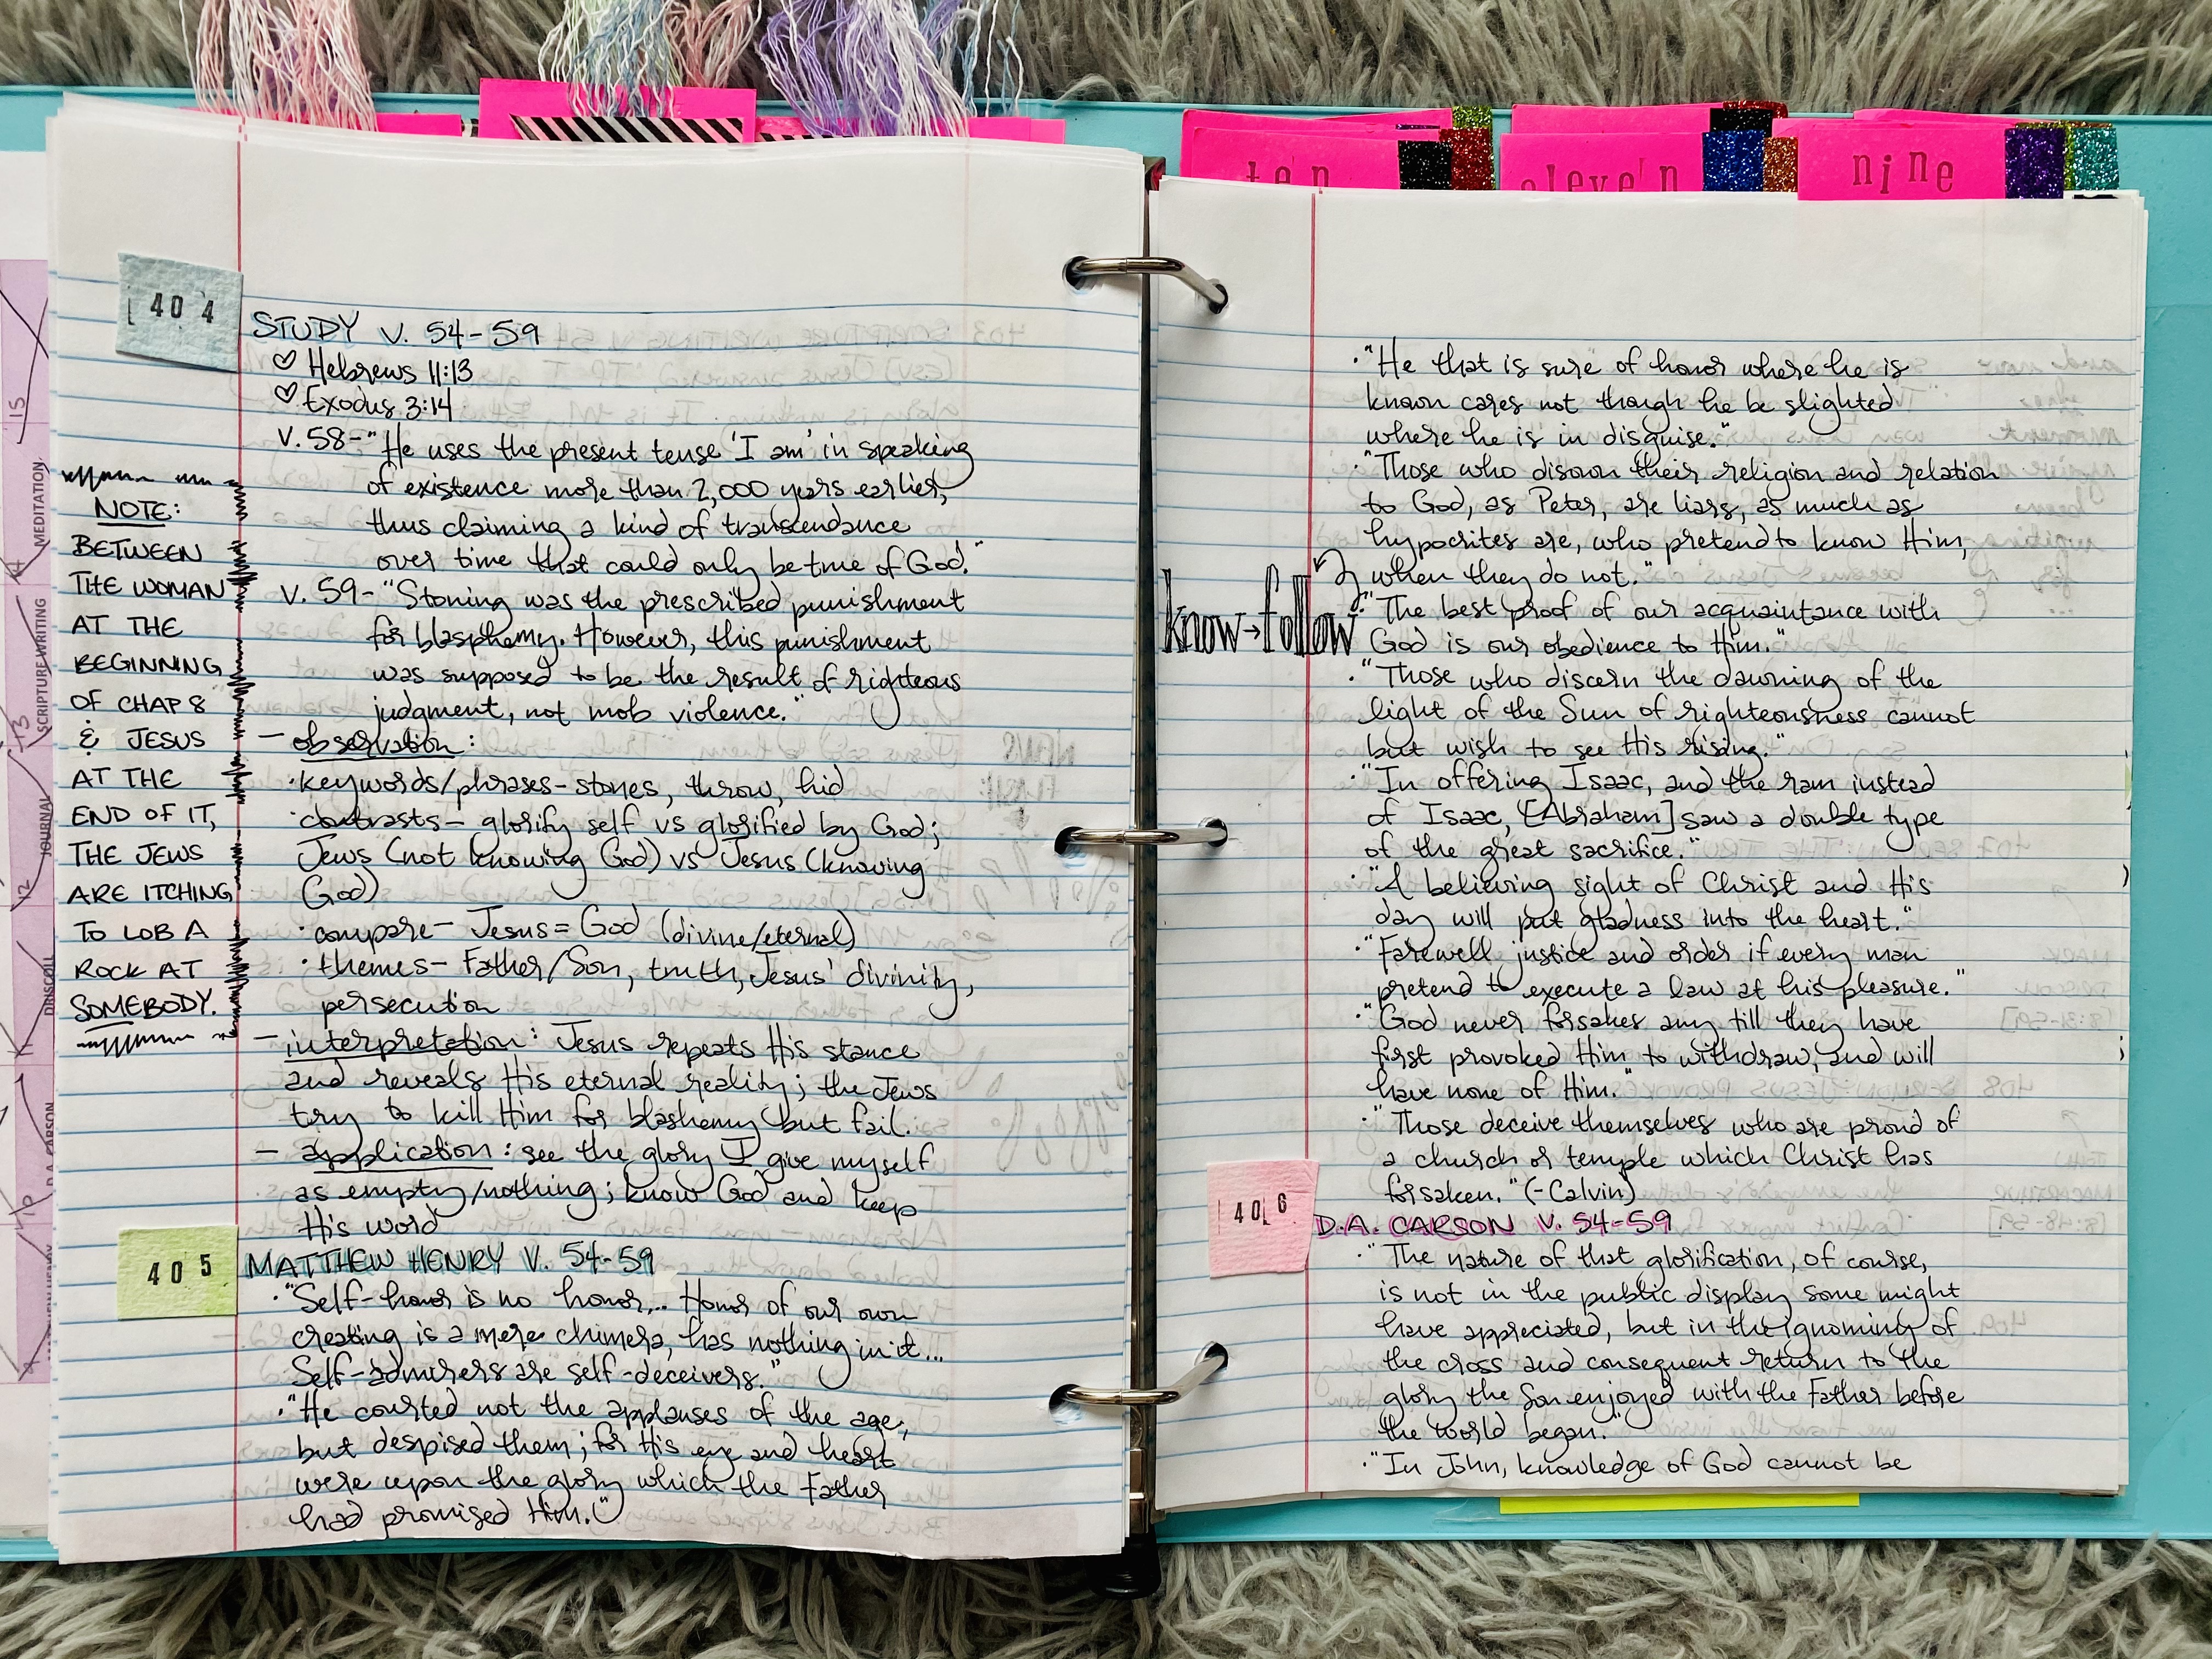 ten
eleven
nine
404
STUDY V. 54-59
♡ Hebrews 11:13
♡ Exodus 3:14
V. 58- "He uses the present tense 'I am' in speaking
of existence more than 2,000 years earlier,
thus claiming a kind of transcendance
over time that could only be true of God."
V. 59- "Stoning was the prescribed punishment
for blasphemy. However, this punishment
was supposed to be the result of righteous
judgment, not mob violence."
- observation:
·keywords/phrases- stones, throw, hid
·contrasts- glorify self vs glorified by God;
Jews (not knowing God) vs Jesus (knowing
God)
·compare- Jesus = God (divine/eternal)
·themes- Father/Son, truth, Jesus' divinity,
persecution
- interpretation: Jesus repeats His stance
and reveals His eternal reality; the Jews
try to kill Him for blashemy but fail.
- application: see the glory I give myself
as empty/nothing; know God and keep
His word
NOTE:
BETWEEN
THE WOMAN
AT THE
BEGINNING
OF CHAP 8
& JESUS
AT THE
END OF IT,
THE JEWS
ARE ITCHING
TO LOB A
ROCK AT
SOMEBODY.
405
MATTHEW HENRY V. 54-59
·"Self-honor is no honor... Honor of our own
creating is a mere chimera, has nothing in it...
Self-admirers are self-deceivers."
·"He courted not the applauses of the age,
but despised them; for His eye and heart
were upon the glory which the Father
had promised Him."
·"He that is sure of honor where he is
known cares not though he be slighted
where he is in disguise."
·"Those who disown their religion and relation
to God, as Peter, are liars, as much as
hypocrites are, who pretend to know Him,
when they do not."
know→follow
·"The best proof of our acquaintance with
God is our obedience to Him."
·"Those who discern the dawning of the
light of the Sun of righteousness cannot
but wish to see His rising."
·"In offering Isaac, and the ram instead
of Isaac, [Abraham] saw a double type
of the great sacrifice."
·"A believing sight of Christ and His
day will put gladness into the heart."
·"Farewell justice and order if every man
pretend to execute a law at his pleasure."
·"God never forsakes any till they have
first provoked Him to withdraw, and will
have none of Him."
·"Those deceive themselves who are proud of
a church or temple which Christ has
forsaken." (-Calvin)
406
D.A. CARSON V. 54-59
·"The nature of that glorification, of course,
is not in the public display some might
have appreciated, but in the ignominy of
the cross and consequent return to the
glory the Son enjoyed with the Father before
the world began."
·"In John, knowledge of God cannot be
15
MEDITATION
SCRIPTURE WRITING
13
JOURNAL
12
DRISCOLL
11
D.A. CARSON
10